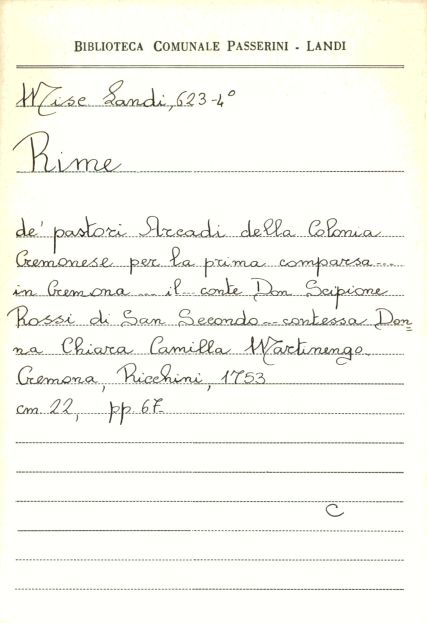 BIBLIOTECA COMUNALE PASSERINI - LANDI
Misc Landi, 623-4°
Rime
de' pastori Arcadi della Colonia
Cremonese per la prima comparsa...
in Cremona ... il conte Don Scipione
Rossi di San Secondo... contessa Don=
na Chiara Camilla Martinengo.
Cremona, Ricchini, 1753
cm. 22, pp. 67.
C